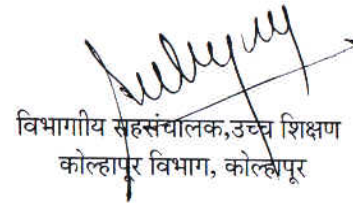 विभागीय सहसंचालक,उच्च शिक्षण
कोल्हापूर विभाग, कोल्हापूर